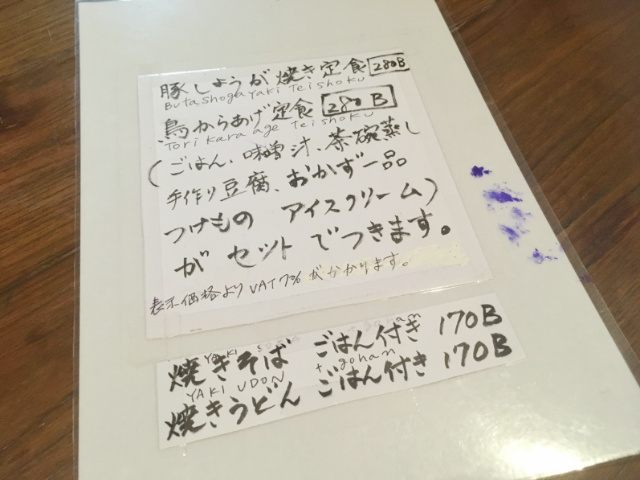 豚しょうが焼き定食 280B
Buta Shoga Yaki Teishoku
鳥からあげ定食 280B
Tori kara age teishoku
(ごはん、味噌汁、茶碗蒸し
手作り豆腐、おかず一品
つけもの アイスクリーム)
がセットでつきます。
表示価格よりVAT7%がかかります。
YAKI
焼きそば ごはん付き 170B
YAKI UDON + gohan
焼きうどん ごはん付き 170B